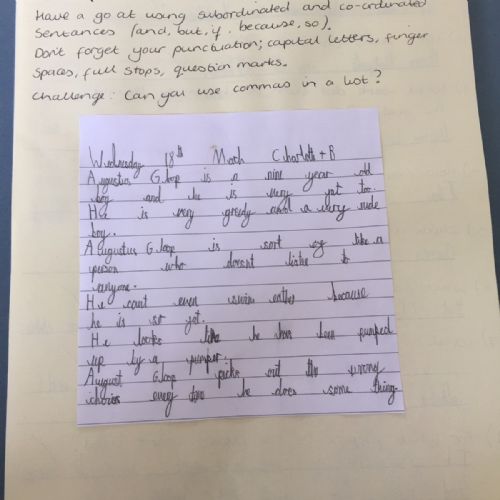 Have a go at using subordinated and co-ordinated
sentences (and, but, if, because, so).
Don't forget your punctuation; capital letters, finger
spaces, full stops, question marks.
Challenge: Can you use commas in a list?
Wednesday 18th March Charlotte + B
Augustus Gloop is a nine year old
boy and he is very fat too.
He is very greedy and a very rude
boy.
Augustus Gloop is sort of like a
person who doesnt listen to
anyone.
He cant even swim eather because
he is so fat.
He looks like he has been pumped
up by a pumper.
August Gloop picks out the wrong
choices every time he does some thing.